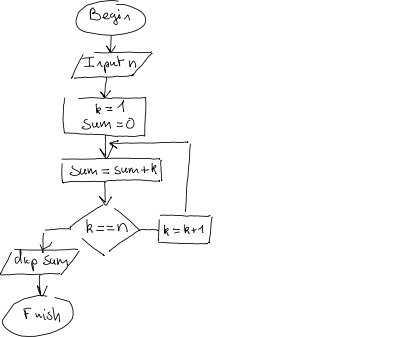 Begin
Input n
k = 1
Sum = 0
Sum = sum + k
k == n
k = k + 1
disp sum
Finish